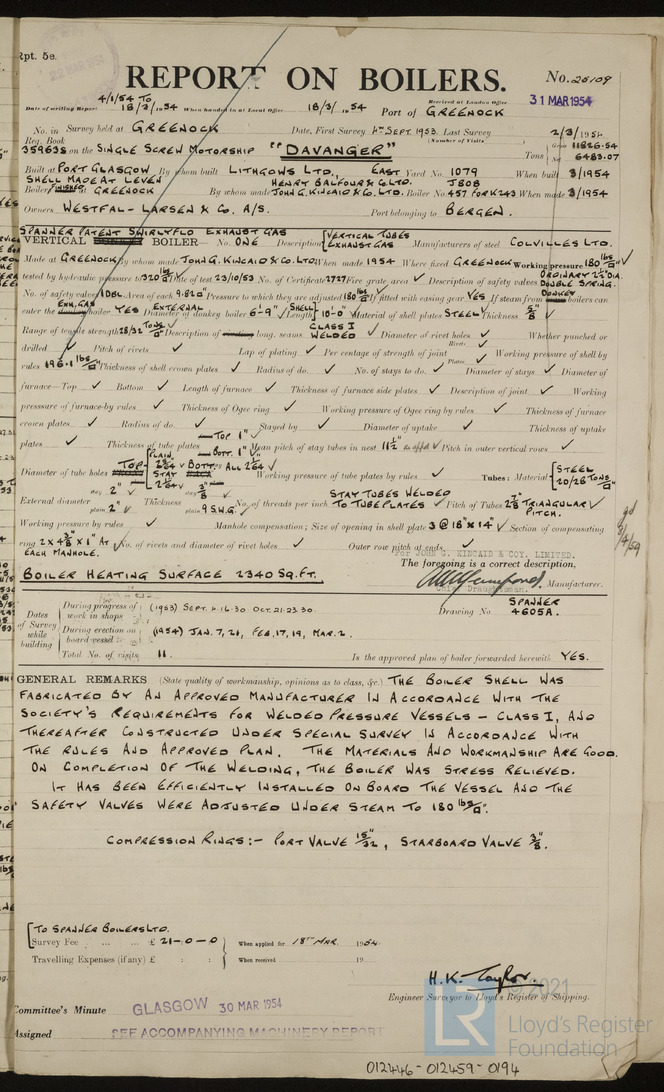 Rpt. 5e.
REPORT ON BOILERS.
No. 26109
4/1/54 To
Date of writing Report 18/3/1954 When handed in at Local Office 18/3/1954 Port of GREENOCK
Received at London Office
31 MAR 1954
No. in Survey held at GREENOCK Date, First Survey 4th SEPT. 1953. Last Survey 2/3/1954.
Reg. Book (Number of Visits)
35963s on the SINGLE SCREW MOTORSHIP "DAVANGER" Tons Gross 11826.54
Net 6483.07
Built at PORT GLASGOW By whom built LITHGOWS LTD., EAST Yard No. 1079 When built 3/1954
SHELL MADE AT LEVEN HENRY BALFOUR & CO. LTD. J808
Boiler FINISHED at GREENOCK By whom made JOHN G. KINCAID & CO. LTD. Boiler No. 457 FOR K243 When made 3/1954
Owners WESTFAL-LARSEN & CO. A/S. Port belonging to BERGEN.
SPANNER PATENT SWIRLYFLO EXHAUST GAS
VERTICAL BOILER— No. ONE Description VERTICAL TUBES EXHAUST GAS Manufacturers of steel COLVILLES LTD.
Made at GREENOCK By whom made JOHN G. KINCAID & CO. LTD When made 1954 Where fixed GREENOCK Working pressure 180 lbs/□"
tested by hydraulic pressure to 320 lbs/□" Date of test 23/10/53 No. of Certificate 2727 Fire grate area ✓ Description of safety valves ORDINARY 2½" DIA. DOUBLE SPRING.
No. of safety valves 1 DBL Area of each 9.82□" Pressure to which they are adjusted 180 lbs/□" If fitted with easing gear YES If steam from DONKEY boilers can
enter the EXH. GAS boiler YES EXTERNAL Diameter of donkey boiler 6'-9" ✓ SHELL Length 10'-0" Material of shell plates STEEL Thickness 5/8"
Range of tensile strength 28/32 TONS/□" Description of long. seams CLASS I WELDED ✓ Diameter of rivet holes ✓ Whether punched or
drilled ✓ Pitch of rivets ✓ Lap of plating ✓ Per centage of strength of joint Rivets ✓ Plates ✓ Working pressure of shell by
rules 196.1 lbs/□" Thickness of shell crown plates ✓ Radius of do. ✓ No. of stays to do. ✓ Diameter of stays ✓ Diameter of
furnace—Top ✓ Bottom ✓ Length of furnace ✓ Thickness of furnace side plates ✓ Description of joint ✓ Working
pressure of furnace by rules ✓ Thickness of Ogee ring ✓ Working pressure of Ogee ring by rules ✓ Thickness of furnace
crown plates ✓ Radius of do. ✓ Stayed by ✓ Diameter of uptake ✓ Thickness of uptake
plates ✓ Thickness of tube plates TOP 1" ✓ BOTT. 1" ✓ Mean pitch of stay tubes in nest 11½" Pitch in outer vertical rows ✓
Diameter of tube holes TOP PLAIN 2 9/64 ✓ STAY 2 9/64 ✓ BOTT. ALL 2 1/64 ✓ Working pressure of tube plates by rules ✓ Tubes: Material STEEL 20/26 TONS/□"
External diameter stay 2" ✓ plain 2" ✓ Thickness 3/8" ✓ 9 S.W.G. ✓ No. of threads per inch STAY TUBES WELDED TO TUBEPLATES ✓ Pitch of Tubes 2 7/8" TRIANGULAR PITCH.
Working pressure by rules ✓ Manhole compensation; Size of opening in shell plate 3 @ 18" x 14" ✓ Section of compensating
ring 2 x 4⅜ x 1" AT EACH MANHOLE. No. of rivets and diameter of rivet holes ✓ Outer row pitch at ends ✓
For JOHN G. KINCAID & COY. LIMITED.
The foregoing is a correct description,
BOILER HEATING SURFACE 2340 SQ. FT.
Manufacturer.
Chief Draughtsman.
Dates of Survey while building
During progress of work in shops (1953) SEPT. 4.16.30 OCT. 21.23.30.
Drawing No. SPANNER 4605A.
During erection on board vessel (1954) JAN. 7, 21, FEB. 17, 19, MAR. 2.
Total No. of visits 11. Is the approved plan of boiler forwarded herewith YES.
GENERAL REMARKS (State quality of workmanship, opinions as to class, &c.) THE BOILER SHELL WAS
FABRICATED BY AN APPROVED MANUFACTURER IN ACCORDANCE WITH THE
SOCIETY'S REQUIREMENTS FOR WELDED PRESSURE VESSELS – CLASS I, AND
THEREAFTER CONSTRUCTED UNDER SPECIAL SURVEY IN ACCORDANCE WITH
THE RULES AND APPROVED PLAN. THE MATERIALS AND WORKMANSHIP ARE GOOD.
ON COMPLETION OF THE WELDING, THE BOILER WAS STRESS RELIEVED.
IT HAS BEEN EFFICIENTLY INSTALLED ON BOARD THE VESSEL AND THE
SAFETY VALVES WERE ADJUSTED UNDER STEAM TO 180 lbs/□".
COMPRESSION RINGS:– PORT VALVE 15/32", STARBOARD VALVE 3/8".
TO SPANNER BOILERS LTD.
Survey Fee ... ... £ 21-0-0 When applied for 18TH MAR. 1954
Travelling Expenses (if any) £ : : When received 19
H.K. Taylor.
Engineer Surveyor to Lloyd's Register of Shipping.
© 2021
Committee's Minute GLASGOW 30 MAR 1954
Assigned SEE ACCOMPANYING MACHINERY REPORT
LR Lloyd's Register Foundation
012446-012459-0194